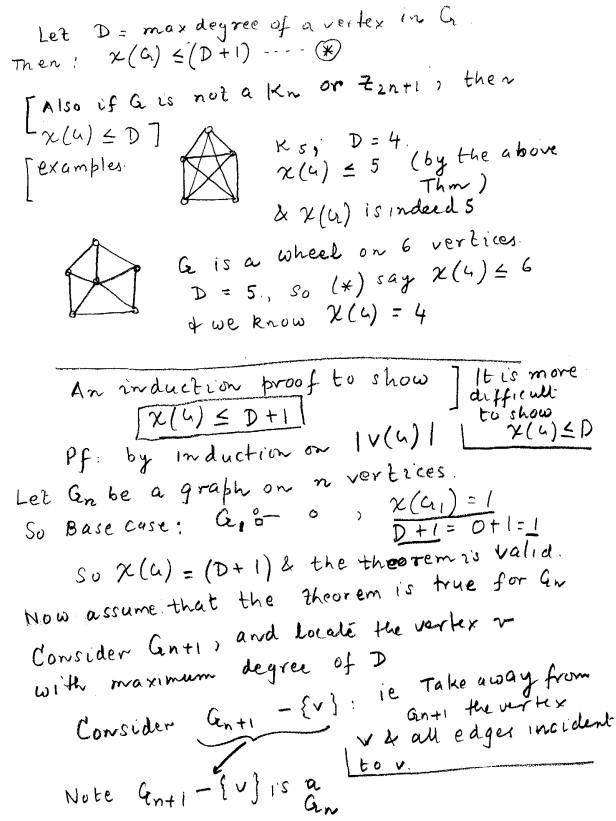 Let D = max degree of a vertex in G.
Then: χ(G) ≤ (D+1) ---- (*)
[Also if G is not a Kn or Z2n+1, then
χ(G) ≤ D]
[examples.
K5; D = 4.
χ(G) ≤ 5 (by the above
Thm)
& χ(G) is indeed 5
G is a wheel on 6 vertices.
D = 5., so (*) say χ(G) ≤ 6
& we know χ(G) = 4
An induction proof to show
χ(G) ≤ D+1
] It is more
difficult
to show
χ(G) ≤ D
Pf: by induction on |V(G)|
Let Gn be a graph on n vertices.
So Base case: G1 o, χ(G1) = 1
D+1 = 0+1 = 1
So χ(G) = (D+1) & the theorem is valid.
Now assume that the theorem is true for Gn
Consider Gn+1, and locate the vertex v
with maximum degree of D
Consider Gn+1 - {v}: ie Take away from
Gn+1 the vertex
v & all edges incident
to v.
Note Gn+1 - {v} is a
Gn